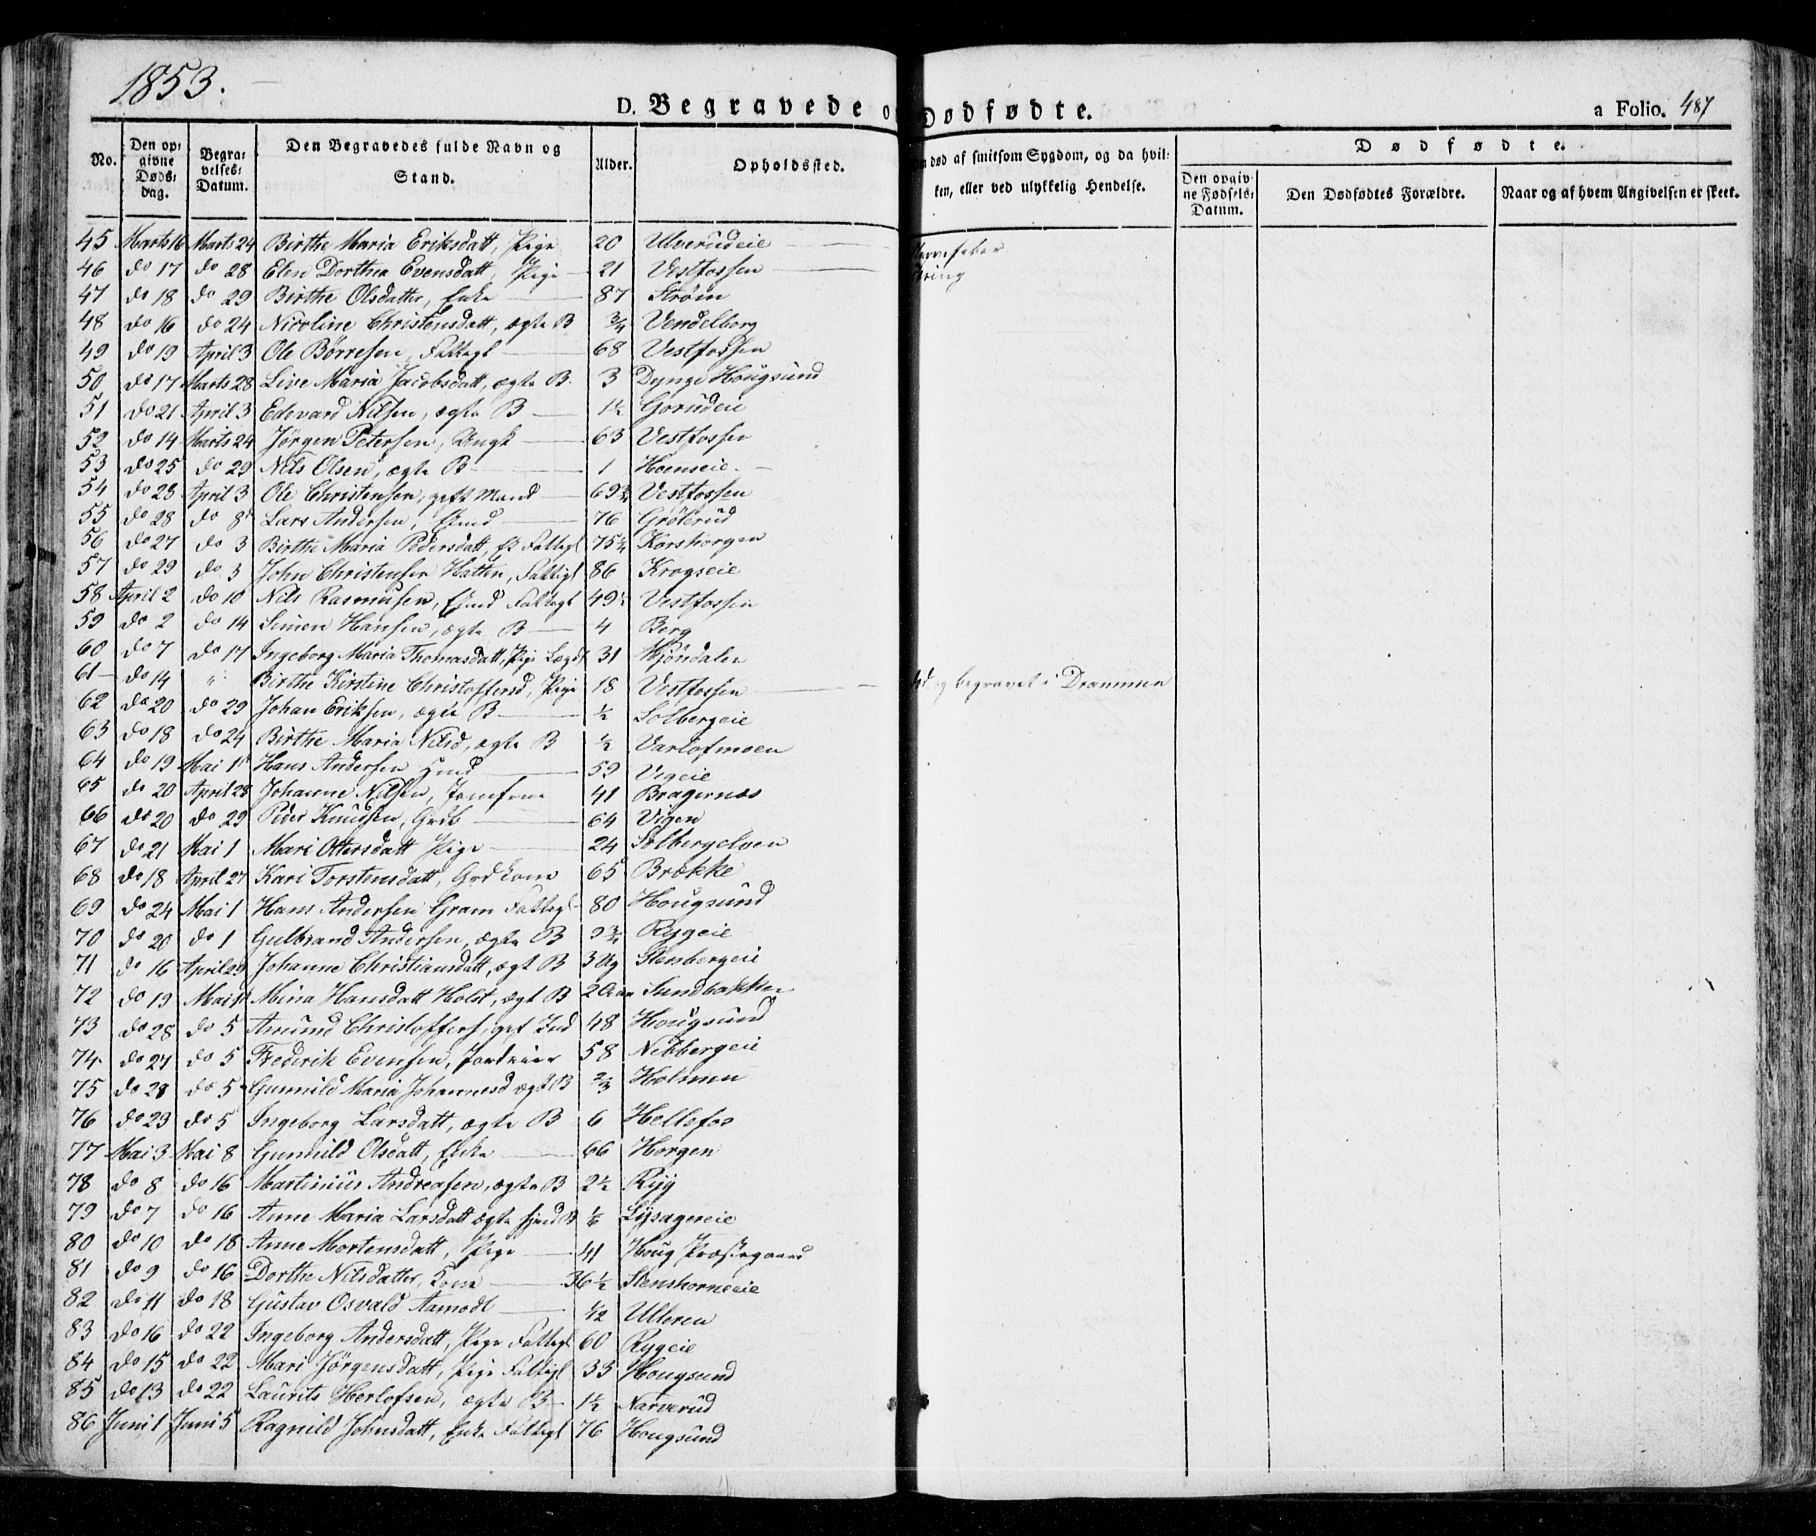 1853.
D. Begravede o Dødfødte. a Folio. 487
No. Den opgivne Dødsdag. Begravelses-Datum. Den Begravedes fulde Navn og Stand. Alder. Opholdssted. død af smitsom Sygdom, og da hvilken, eller ved ulykkelig Hendelse. Dødfødte. Den opgivne Fødsels-Datum. Den Dødfødtes Forældre. Naar og af hvem Angivelsen er skeet.
45 Marts 16 Marts 24 Birthe Maria Eriksdatt, Pige 20 Ulverudeie Nervefeber
46 do 17 do 28 Elen Dorthea Evensdatt, Pige 21 Vestfossen
47 do 18 do 29 Birthe Olsdatter, Enke 87 Strøm
48 do 16 do 24 Nicoline Christensdatt, ægte B 3/4 Vendelborg
49 do 19 April 3 Ole Børresen, Fattigl 68 Vestfossen
50 do 17 Marts 28 Live Maria Jacobsdatt, ægte B. 3 Dynge Hougsund
51 do 21 April 3 Edevard Nilsen, ægte B 1½ Gorudeie
52 do 14 Marts 24 Jørgen Petersen, Ungk 63 Vestfossen
53 do 25 do 29 Nils Olsen, ægte B 1 Hoenseie
54 do 23 April 3 Ole Christensen, gift Mand 69 3/4 Vestfossen
55 do 28 do 8 Lars Andersen, Emd 76 Grøterud
56 do 27 do 3 Birthe Maria Pedersdatt, E Fattigl 75¼ Korshorgen
57 do 29 do 3 John Christensen Hatten, Fattigl 86 Krogseie
58 April 2 do 10 Nils Rasmusen, Emd Fattigl 49½ Vestfossen
59 do 2 do 14 Simen Hansen, ægte B 4 Berg
60 do 7 do 17 Ingeborg Maria Thomasdatt, Pige Lægdsl 31 Mjøndalen
61 do 14 " Birthe Kirstine Christoffersd, Pige 18 Vestfossen og begravet i Drammen
62 do 20 do 29 Johan Eriksen, ægte B ½ Solbergeie
63 do 18 do 24 Birthe Maria Nilsd, ægte B ½ Varlofmoen
64 do 19 Mai 1 Hans Andersen Hmd 59 Vigeie
65 do 20 April 28 Johanne Nilsen, Jomfrue 41 Bragernæs
66 do 20 do 29 Peder Knudsen, Grdb 64 Vigen
67 do 21 Mai 1 Mari Ottersdatt Pige 24 Solbergelven
68 do 18 April 27 Kari Torstensdatt, Grdkone 65 Brække
69 do 24 Mai 1 Hans Andersen Gram Fattigl 80 Hougsund
70 do 20 do 1 Gulbrand Andersen, ægte B 9 3/4 Rygeie
71 do 16 April 29 Johanne Christiansdatt, ægt B 3 Ug Stensbergeie
72 do 19 Mai 1 Mina Hansdatt Holst, ægt B 2 Aar Sundbakken
73 do 28 do 5 Amund Christoffers, gift Ind 48 Hougsund
74 do 27 do 5 Frederik Evensen, Jordeier 58 Nebbergeie
75 do 28 do 5 Gunnild Maria Johannesd ægt B 2/3 Holmen
76 do 23 do 5 Ingeborg Larsdatt, ægte B 6 Hellefos
77 Mai 3 Mai 8 Gunnild Olsdatt, Enke 66 Horgen
78 do 8 do 16 Martinius Andreasen, ægte B 2½ Ryg
79 do 7 do 16 Anne Maria Larsdatt ægte B 1/6 Lysagereie
80 do 10 do 18 Anne Mortensdatt, Pige 41 Houg Præstegaard
81 do 9 do 16 Dorthe Nilsdatter, Kone 36½ Stenshorneeie
82 do 11 do 18 Gustav Osvald Aamodt ½ Ulleren
83 do 16 do 22 Ingeborg Andersdatt, Pige Fattigl 60 Rygeie
84 do 15 do 22 Mari Jørgensdatt, Pige Fattigl 33 Hougsund
85 do 13 do 22 Laurits Herlofsen, ægte B 1½ Narverud
86 Juni 1 Juni 5 Ragnild Johnsdatt, Enke Fattigl 76 Hougsund